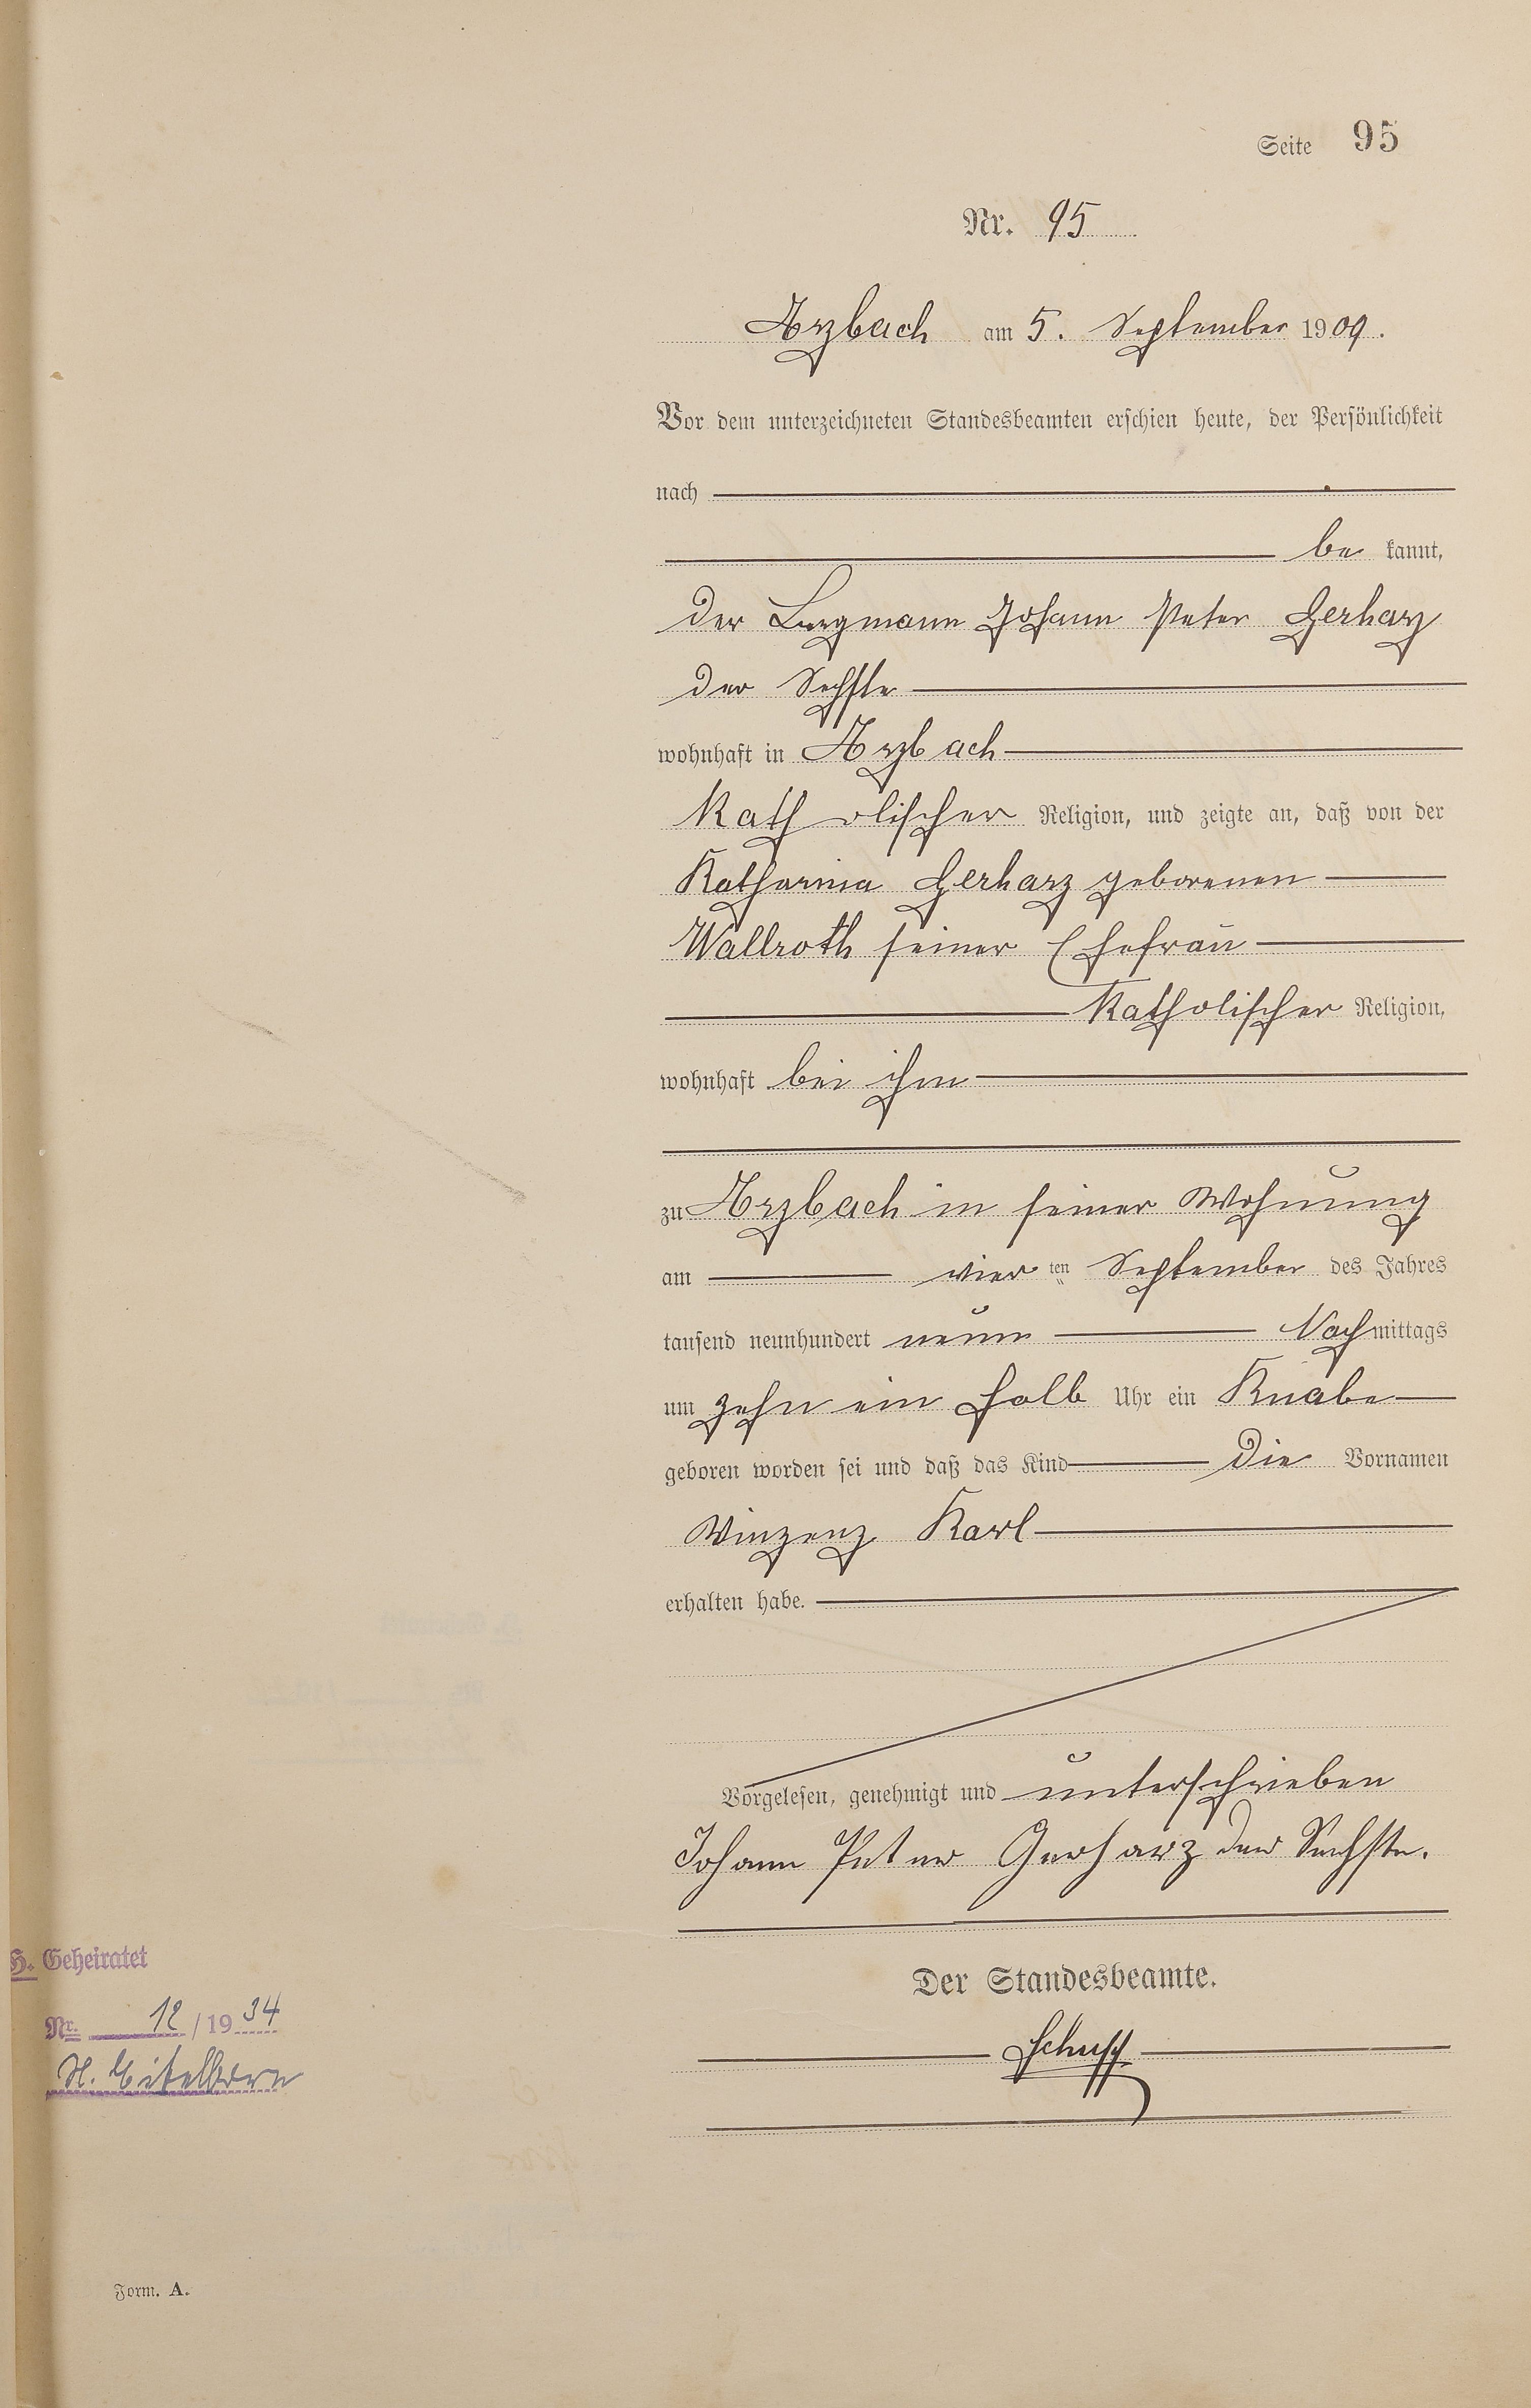 Seite 95
Nr. 95
Arzbach am 5. September 1909.
Vor dem unterzeichneten Standesbeamten erschien heute, der Persönlichkeit
nach
be kannt,
der Bergmann Johann Peter Gerharz
der Sechste
wohnhaft in Arzbach
katholischer Religion, und zeigte an, daß von der
Katharina Gerharz geborenen
Wallroth seiner Ehefrau
katholischer Religion,
wohnhaft bei ihm
zu Arzbach in seiner Wohnung
am vier ten September des Jahres
tausend neunhundert neun Nachmittags
um zehn ein halb Uhr ein Knabe
geboren worden sei und daß das Kind die Vornamen
Winzenz Karl
erhalten habe.
Vorgelesen, genehmigt und unterschrieben
Johann Peter Gerharz der Sechste.
Der Standesbeamte.
H. Geheiratet
Nr. 12/1934
Form. A.